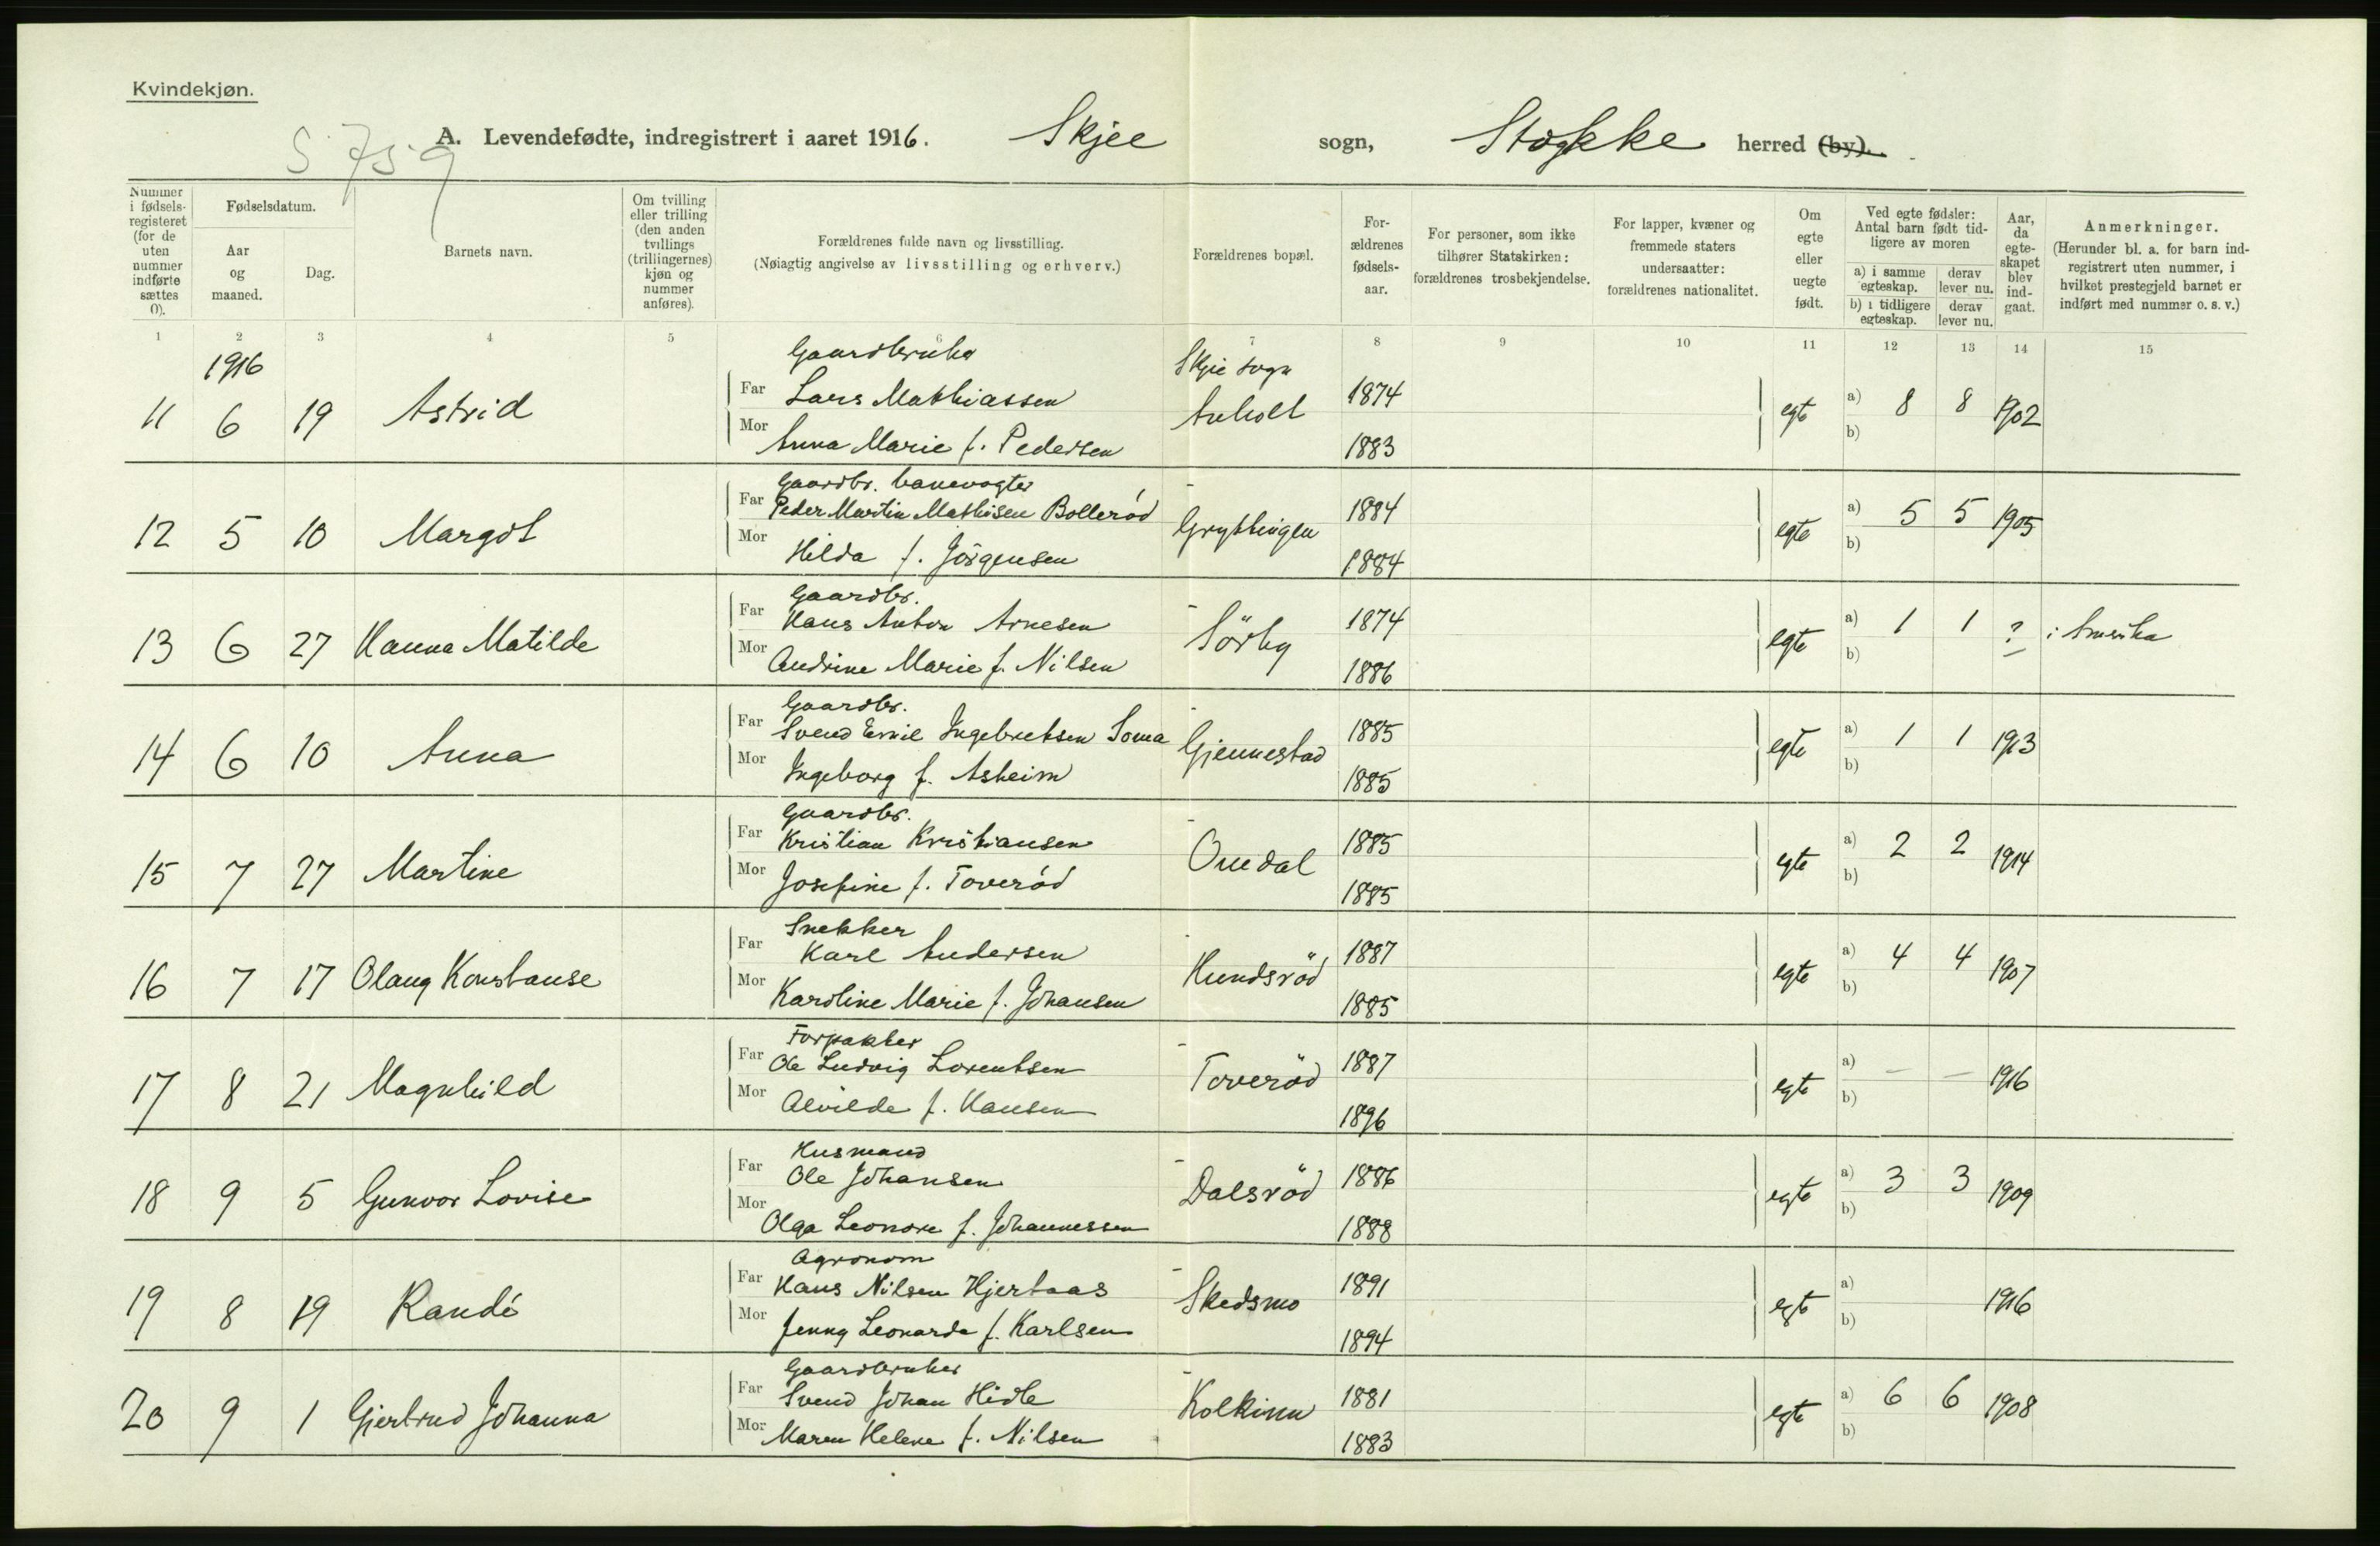 Kvindekjøn.
S. 759
A. Levendefødte, indregistrert i aaret 1916. Skjee sogn, Stokke herred (by).
Nummer i fødsels-registeret (for de uten nummer indførte sættes 0).
Fødselsdatum.
Aar og maaned.
Dag.
Barnets navn.
Om tvilling eller trilling (den anden tvillings (trillingernes) kjøn og nummer anføres).
Forældrenes fulde navn og livsstilling.
(Nøiagtig angivelse av livsstilling og erhverv.)
Forældrenes bopæl.
For-ældrenes fødsels-aar.
For personer, som ikke tilhører Statskirken: forældrenes trosbekjendelse.
For lapper, kvæner og fremmede staters undersaatter: forældrenes nationalitet.
Om egte eller uegte født.
Ved egte fødsler: Antal barn født tid-ligere av moren
a) i samme egteskap.
derav lever nu.
b) i tidligere egteskap.
derav lever nu.
Aar, da egte-skapet blev ind-gaat.
Anmerkninger.
(Herunder bl. a. for barn ind-registrert uten nummer, i hvilket prestegjeld barnet er indført med nummer o. s. v.)
1 2 3 4 5 6 7 8 9 10 11 12 13 14 15
1916 Gaardbruker Skjee sogn
11 6 19 Astrid Far Lars Mathiassen Anholt 1874 egte a) 8 8 1902
Mor Anna Marie f. Pedersen 1883 b)
Gaardbr. banevogter
12 5 10 Margot Far Peder Martin Mathisen Bollerød Gryttingen 1884 egte a) 5 5 1905
Mor Hilda f. Jörgensen 1884 b)
Gaardbr.
13 6 27 Hanna Matilde Far Hans Anton Arnesen Sörby 1874 egte a) 1 1 ? i Amerika
Mor Andrine Marie f. Nilsen 1886 b)
Gaardbr.
14 6 10 Anna Far Svend Emil Ingebretsen Soma Gjennestad 1885 egte a) 1 1 1913
Mor Ingeborg f. Asheim 1885 b)
Gaardbr.
15 7 27 Martine Far Kristian Kristiansen Omdal 1885 egte a) 2 2 1914
Mor Josefine f. Toverød 1885 b)
Snekker
16 7 17 Olaug Konstanse Far Karl Andersen Hundsröd 1887 egte a) 4 4 1907
Mor Karoline Marie f. Johansen 1885 b)
Forpakter
17 8 21 Magnhild Far Ole Ludvig Lorentsen Toveröd 1887 egte a) — — 1916
Mor Alvilde f. Hansen 1896 b)
Husmand
18 9 5 Gunvor Lovise Far Ole Johansen Dalsröd 1886 egte a) 3 3 1909
Mor Olga Leonore f. Johannessen 1888 b)
Agronom
19 8 19 Randi Far Hans Nilsen Hjertaas Skedsmo 1891 egte a) 1916
Mor Jenny Leonarda f. Karlsen 1894 b)
Gaardbruker
20 9 1 Gjertrud Johanna Far Svend Johan Hidle Kolkinn 1881 egte a) 6 6 1908
Mor Maren Helene f. Nilsen 1883 b)